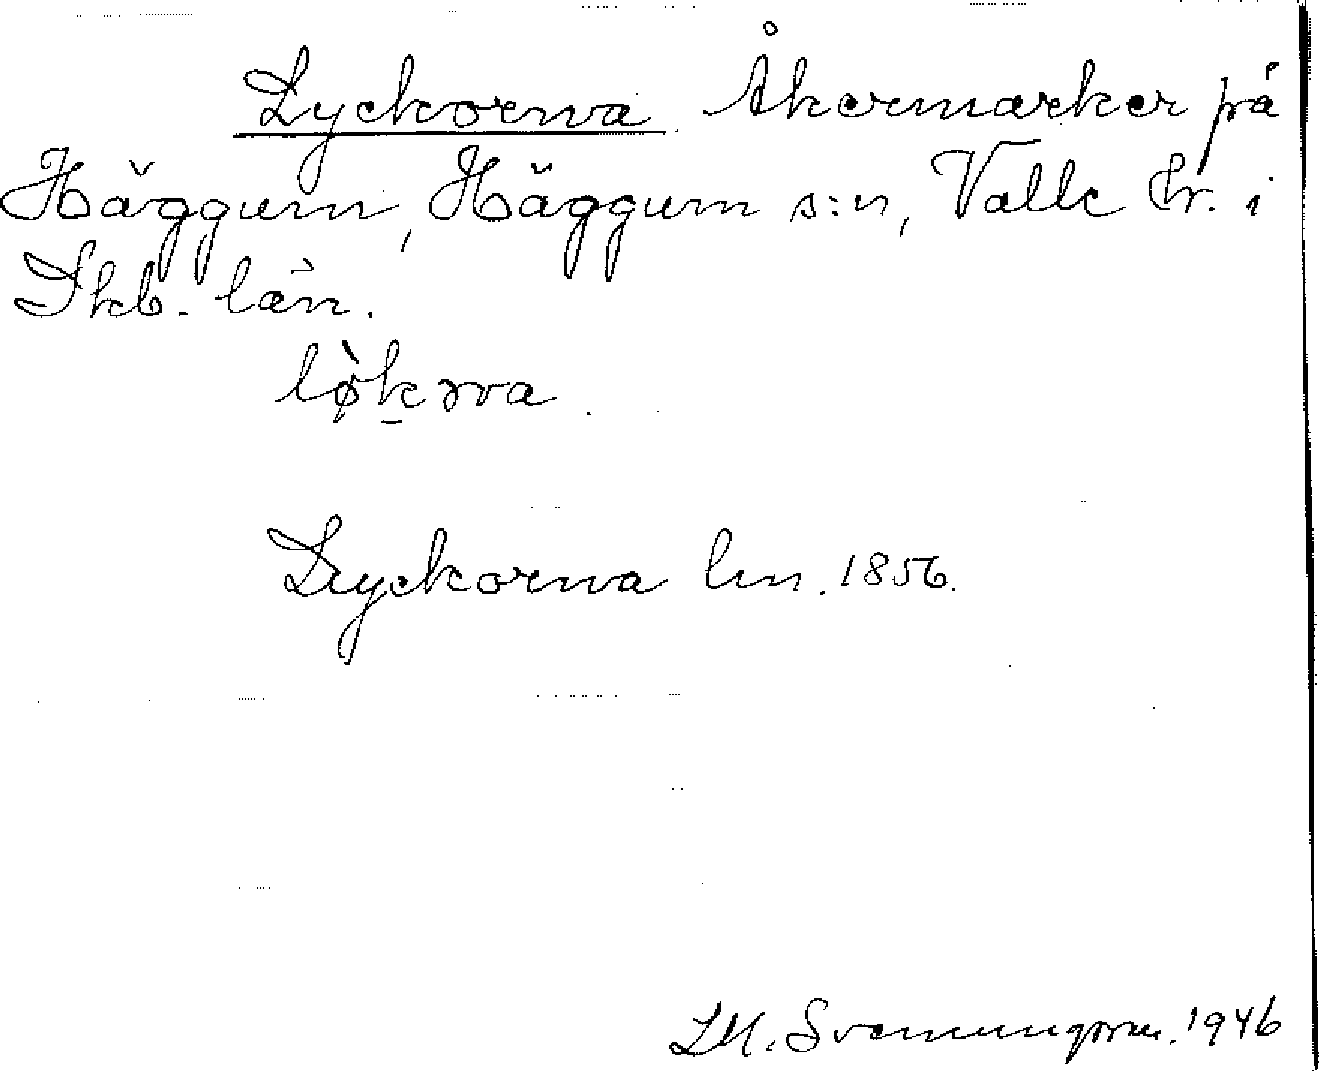 Lyckorna Åkermarker på
Häggum, Häggum s:n, Valle hr. i
Skb. län.
lø̀k̠ɔrna.
Lyckorna lm. 1856.
1946